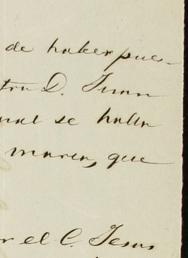 de haber pues-
tra D. Juan
nal se halla
marca, que
r el C. Jesus